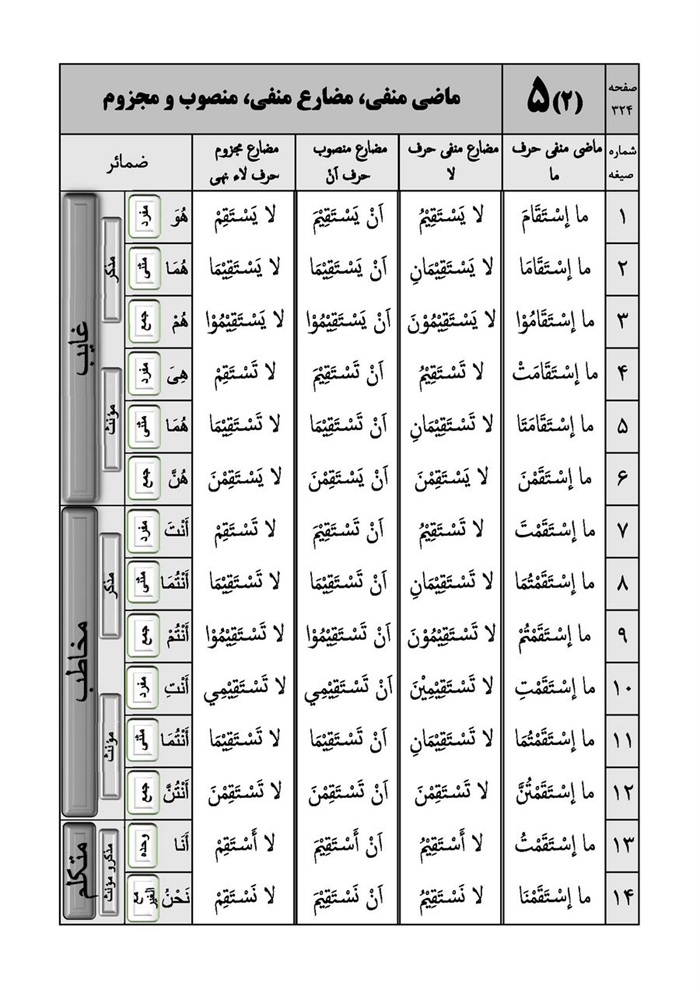 صفحه ۳۲۴ (۲)۵ ماضی منفی، مضارع منفی، منصوب و مجزوم
شماره صیغه ماضی منفی حرف ما مضارع منفی حرف لا مضارع منصوب حرف اَنْ مضارع مجزوم حرف لاء نهی ضمائر
۱ ما إسْتَقَامَ لا یَسْتَقِیْمُ اَنْ یَسْتَقِیْمَ لا یَسْتَقِمْ هُوَ مفرد مذکر غایب
۲ ما إسْتَقَامَا لا یَسْتَقِیْمَانِ اَنْ یَسْتَقِیْمَا لا یَسْتَقِیْمَا هُمَا مثنی
۳ ما إسْتَقَامُوْا لا یَسْتَقِیْمُوْنَ اَنْ یَسْتَقِیْمُوْا لا یَسْتَقِیْمُوْا هُمْ جمع
۴ ما إسْتَقَامَتْ لا تَسْتَقِیْمُ اَنْ تَسْتَقِیْمَ لا تَسْتَقِمْ هِیَ مفرد مؤنث
۵ ما إسْتَقَامَتَا لا تَسْتَقِیْمَانِ اَنْ تَسْتَقِیْمَا لا تَسْتَقِیْمَا هُمَا مثنی
۶ ما إسْتَقَمْنَ لا یَسْتَقِمْنَ اَنْ یَسْتَقِمْنَ لا یَسْتَقِمْنَ هُنَّ جمع
۷ ما إسْتَقَمْتَ لا تَسْتَقِیْمُ اَنْ تَسْتَقِیْمَ لا تَسْتَقِمْ أَنْتَ مفرد مذکر مخاطب
۸ ما إسْتَقَمْتُمَا لا تَسْتَقِیْمَانِ اَنْ تَسْتَقِیْمَا لا تَسْتَقِیْمَا أَنْتُمَا مثنی
۹ ما إسْتَقَمْتُمْ لا تَسْتَقِیْمُوْنَ اَنْ تَسْتَقِیْمُوْا لا تَسْتَقِیْمُوْا أَنْتُمْ جمع
۱۰ ما إسْتَقَمْتِ لا تَسْتَقِیْمِیْنَ اَنْ تَسْتَقِیْمِي لا تَسْتَقِیْمِي أَنْتِ مفرد مؤنث
۱۱ ما إسْتَقَمْتُمَا لا تَسْتَقِیْمَانِ اَنْ تَسْتَقِیْمَا لا تَسْتَقِیْمَا أَنْتُمَا مثنی
۱۲ ما إسْتَقَمْتُنَّ لا تَسْتَقِمْنَ اَنْ تَسْتَقِمْنَ لا تَسْتَقِمْنَ أَنْتُنَّ جمع
۱۳ ما إسْتَقَمْتُ لا أَسْتَقِیْمُ اَنْ أَسْتَقِیْمَ لا أَسْتَقِمْ أَنَا وحده مذکر و مؤنث متکلم
۱۴ ما إسْتَقَمْنَا لا نَسْتَقِیْمُ اَنْ نَسْتَقِیْمَ لا نَسْتَقِمْ نَحْنُ مع الغیر